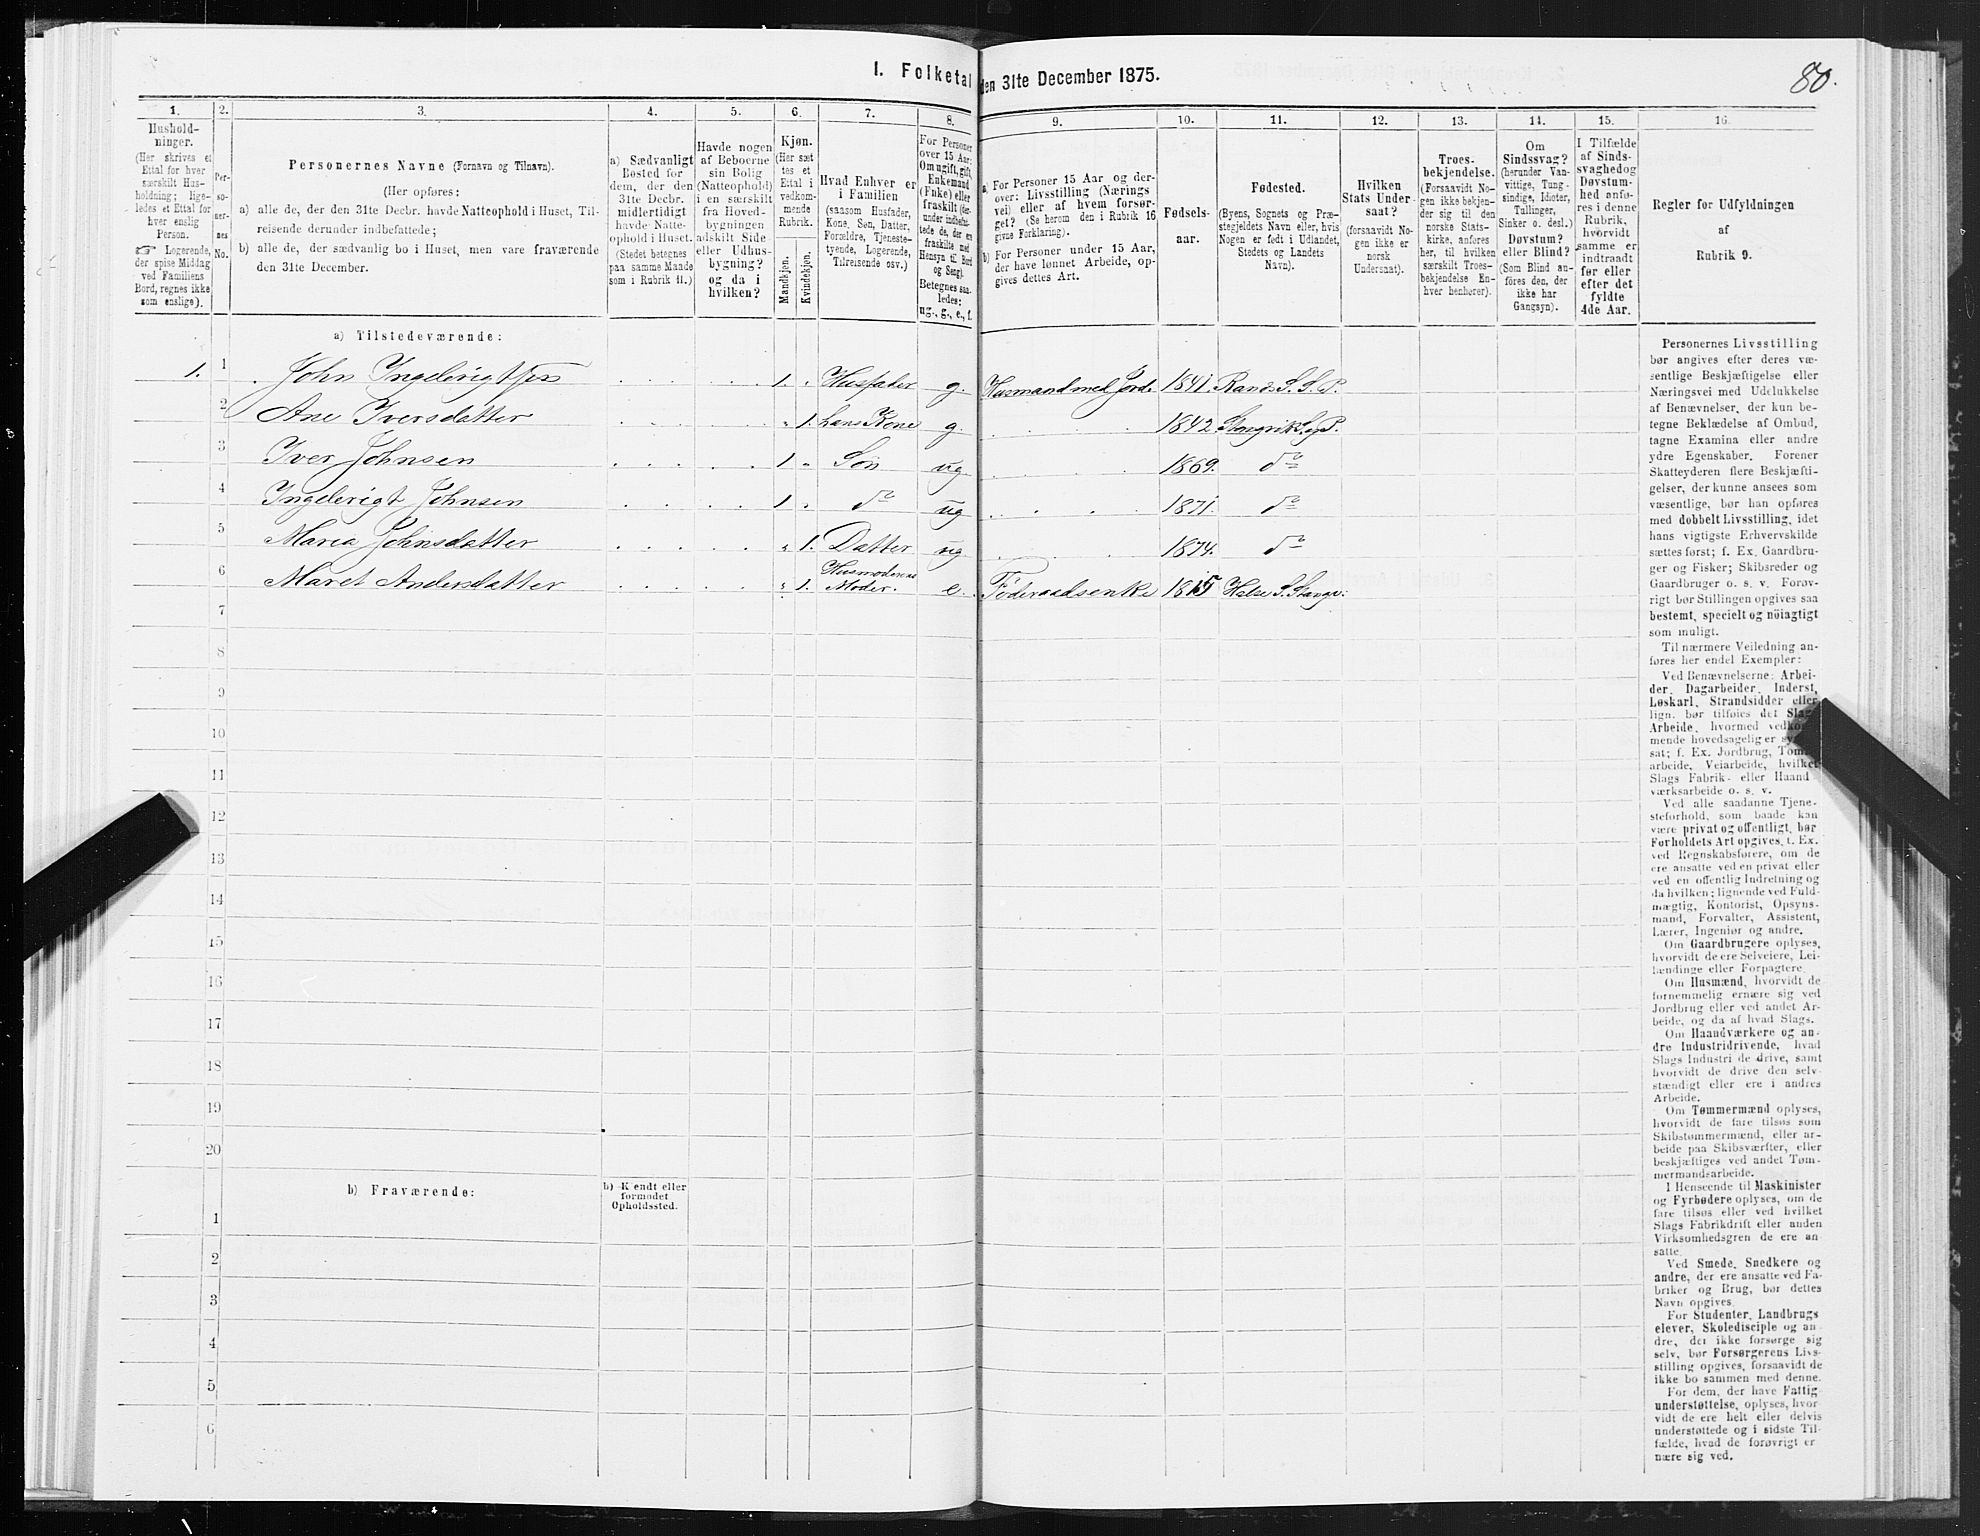 80.
I. Folketal den 31te December 1875.
1. 2. 3. 4. 5. 6. 7. 8. 9. 10. 11. 12. 13. 14. 15. 16.
Hushold-
ninger.
(Her skrives et
Ettal for hver
særskilt Hus-
holdning; lige-
ledes et Ettal for
hver enslig
Person.
☞ Logerende,
der spise Middag
ved Familiens
Bord, regnes ikke
som enslige).
Per-
so-
ner-
nes
No.
Personernes Navne (Fornavn og Tilnavn).
(Her opføres:
a) alle de, der den 31te Decbr. havde Natteophold i Huset, Til-
reisende derunder indbefattede;
b) alle de, der sædvanlig bo i Huset, men vare fraværende
den 31te December.
a) Sædvanligt
Bosted for
dem, der den
31te Decbr.
midlertidigt
havde Natte-
ophold i Huset.
(Stedet betegnes
paa samme Maade
som i Rubrik 11.)
Havde nogen
af Beboerne
sin Bolig
(Natteophold)
i en særskilt
fra Hoved-
bygningen
adskilt Side-
eller Udhus-
bygning?
og da i
hvilken?
Kjøn.
(Her sæt-
tes et
Ettal i
vedkom-
mende
Rubrik.
Mandkjøn.
Kvindekjøn.
Hvad Enhver er
i Familien
(saasom Husfader,
Kone, Søn, Datter,
Forældre, Tjeneste-
tyende, Logerende,
Tilreisende osv.)
For Personer
over 15 Aar:
Om ugift, gift,
Enkemand
(Enke) eller
fraskilt (der-
under indbefat-
tede de, der ere
fraskilte med
Hensyn til Bord
og Seng).
Betegnes saa-
ledes:
ug., g., e., f.
a) For Personer 15 Aar og der-
over: Livsstilling (Nærings-
vei) eller af hvem forsør-
get? (Se herom den i Rubrik 16
givne Forklaring).
b) For Personer under 15 Aar,
der have lønnet Arbeide, op-
gives dettes Art.
Fødsels-
aar.
Fødested.
(Byens, Sognets og Præ-
stegjeldets Navn eller, hvis
Nogen er født i Udlandet,
Stedets og Landets
Navn).
Hvilken
Stats Under-
saat?
(forsaavidt No-
gen ikke er
norsk
Undersaat).
Troes-
bekjendelse.
(Forsaavidt No-
gen ikke bekjen-
der sig til den
norske Stats-
kirke, anføres
her, til hvilken
særskilt Troes-
bekjendelse En-
hver henhører).
Om
Sindssvag?
(herunder Van-
vittige, Tung-
sindige, Idioter,
Tullinger,
Sinker o. desl.)
Døvstum?
eller Blind?
(Som Blind an-
føres den, der
ikke har
Gangsyn).
I Tilfælde
af Sinds-
svaghed og
Døvstum-
hed anfø-
res i denne
Rubrik,
hvorvidt
samme er
indtraadt
før eller
efter det
fyldte
4de Aar.
Regler for Udfyldningen
af
Rubrik 9.
a) Tilstedeværende:
1. 1 John Ingebrigtsen 1. Husfader g. Husmand med Jord 1841.
2 Ane Iversdatter 1. hans Kone g. 1842
3 Iver Johnsen 1 Søn ug. 1869. do
4 Ingebrigt Johnsen 1 do ug 1871. do
5 Maria Johnsdatter 1. Datter ug 1874. do
6 Maret Andersdatter 1. Husmoderens Moder. e. Føderaadsenke 1815
7
8
9
10
11
12
13
14
15
16
17
18
19
20
b) Fraværende:
b) Kjendt eller
formodet
Opholdssted.
1
2
3
4
5
6
Personernes Livsstilling
bør angives efter deres væ-
sentlige Beskjæftigelse eller
Næringsvei med Udelukkelse
af Benævnelser, der kun be-
tegne Beklædelse af Ombud,
tagne Examina eller andre
ydre Egenskaber. Forener
Skatteyderen flere Beskjæfti-
gelser, der kunne ansees som
væsentlige, bør han opføres
med dobbelt Livsstilling, idet
hans vigtigste Erhvervskilde
sættes først; f. Ex. Gaardbru-
ger og Fisker; Skibsreder og
Gaardbruger o. s. v. Forøv-
rigt bør Stillingen opgives saa
bestemt, specielt og nöiagtigt
som muligt.
Til nærmere Veiledning an-
føres her endel Exempler:
Ved Benævnelserne: Arbei-
der, Dagarbeider, Inderst,
Løskarl, Strandsidder eller
lign. bør tilføies det Slags
Arbeide, hvormed vedkom-
mende hovedsagelig er sys-
sat; f. Ex. Jordbrug, Tømmer-
arbeide, Veiarbeide, hvilket
Slags Fabrik- eller Haand-
værksarbeide o. s. v.
Ved alle saadanne Tjene-
steforhold, som baade kan
være privat og offentligt, bør
Forholdets Art opgives, f. Ex.
ved Regnskabsførere, om de
ere ansatte ved en privat eller
ved en offentlig Indretning og
da hvilken; lignende ved Fuld-
mægtig, Kontorist, Opsyns-
mand, Forvalter, Assistent,
Lærer, Ingeniør og andre.
Om Gaardbrugere oplyses,
hvorvidt de ere Selveiere, Lei-
lændinge eller Forpagtere.
Om Husmænd, hvorvidt de
fornemmelig ernære sig ved
Jordbrug eller ved andet Ar-
beide, og da af hvad Slags.
Om Haandværkere og an-
dre Industridrivende, hvad
Slags Industri de drive, samt
hvorvidt de drive den selv-
stændigt eller ere i andres
Arbeide.
Om Tømmermænd oplyses,
hvorvidt de fare tilsøs som
Skibstømmermænd, eller ar-
beide paa Skibsværfter, eller
beskjæftiges ved andet Tøm-
mermandsarbeide.
I Henseende til Maskinister
og Fyrbødere oplyses, om de
fare tilsøs eller ved hvilket
Slags Fabrikdrift eller anden
Virksomhedsgren de ere an-
satte.
Ved Smede, Snedkere og
andre, der ere ansatte ved Fa-
briker og Brug, bør dettes
Navn opgives.
For Studenter, Landbrugs-
elever, Skoledisciple og an-
dre, der ikke forsørge sig
selv, bør Forsørgerens Livs-
stilling opgives, forsaavidt de
ikke bo sammen med denne.
For dem, der have Fattig-
understøttelse, oplyses, hvor-
vidt de ere helt eller delvis
understøttede og i sidste Til-
fælde, hvad de forøvrigt er-
nære sig ved.